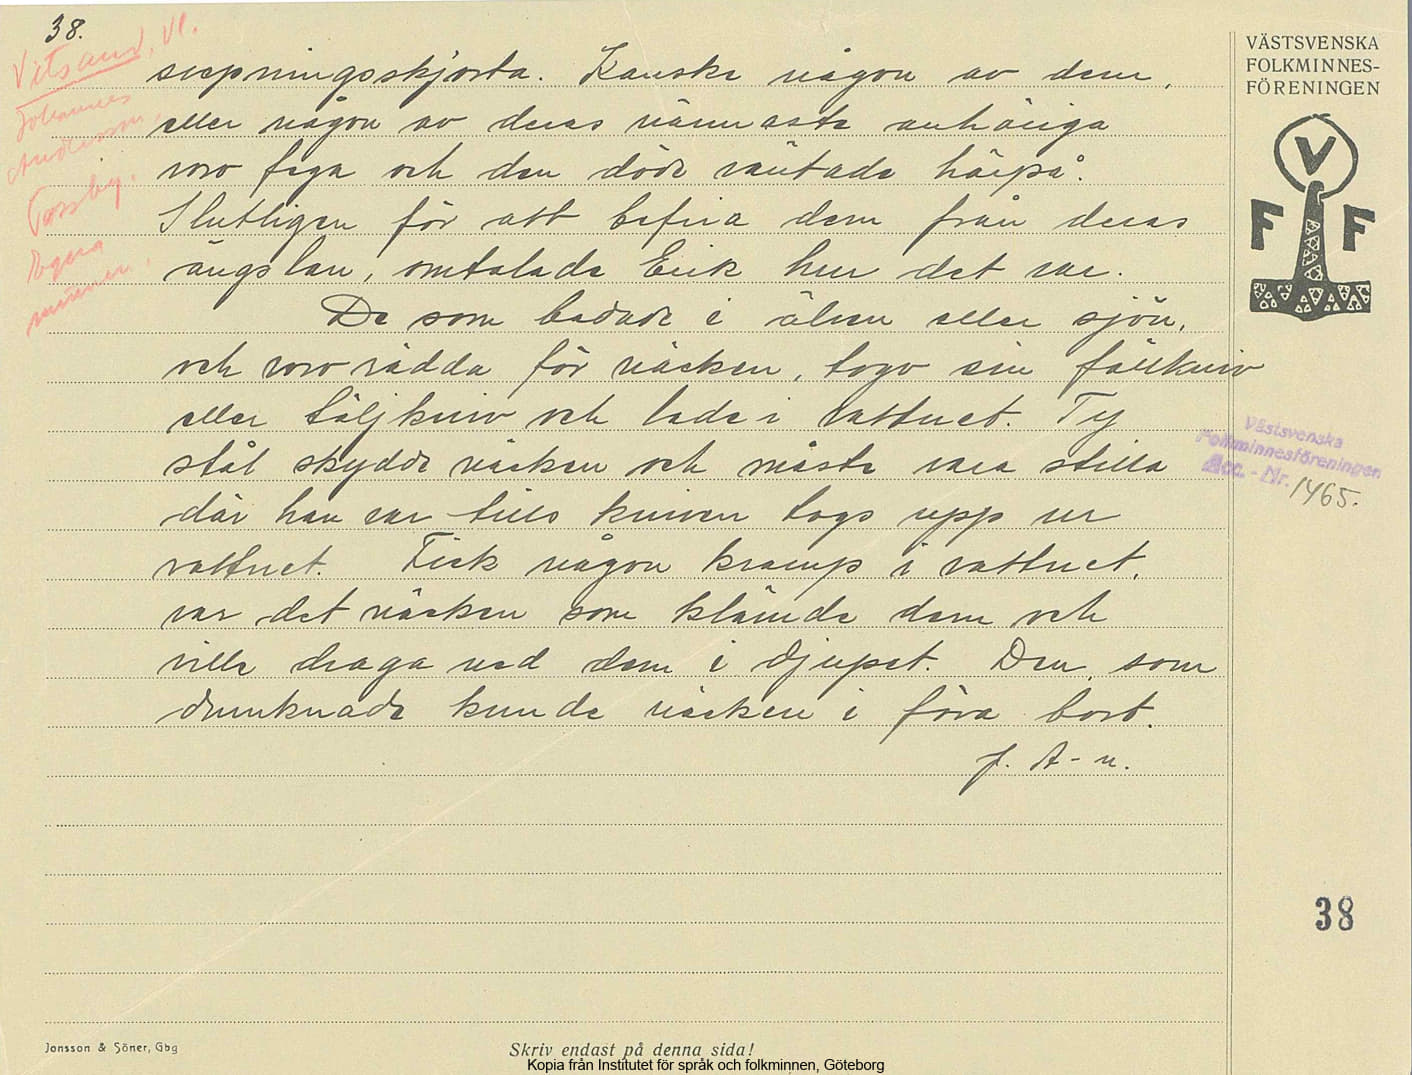 38.
Vitsand, Vl.
Johannes
Andersson,
Torsby.
Egna
minnen.
svepningsskjorta. Kanske någon av dem,
eller någon av deras närmaste anhöriga
voro fega och den döde väntade härpå.
Slutligen för att befria dem från deras
ängslan, omtalade Erik hur det var.
De som badade i älven eller sjön,
och voro rädda för näcken, togo sin fällkniv
eller täljkniv och lade i vattnet. Ty
stål skydde näcken och måste vara stilla
där han var tills kniven togs upp ur
vattnet. Fick någon kramp i vattnet,
var det näcken som klämde dem och
ville draga ned dem i djupet. Den, som
drunknade kunde näcken i föra bort.
J. A-n.
VÄSTSVENSKA
FOLKMINNES-
FÖRENINGEN
V
F F
Västsvenska
Folkminnesföreningen
Acc. - Nr. 1465.
38
Jonsson & Söner, Gbg
Skriv endast på denna sida!
Kopia från Institutet för språk och folkminnen, Göteborg